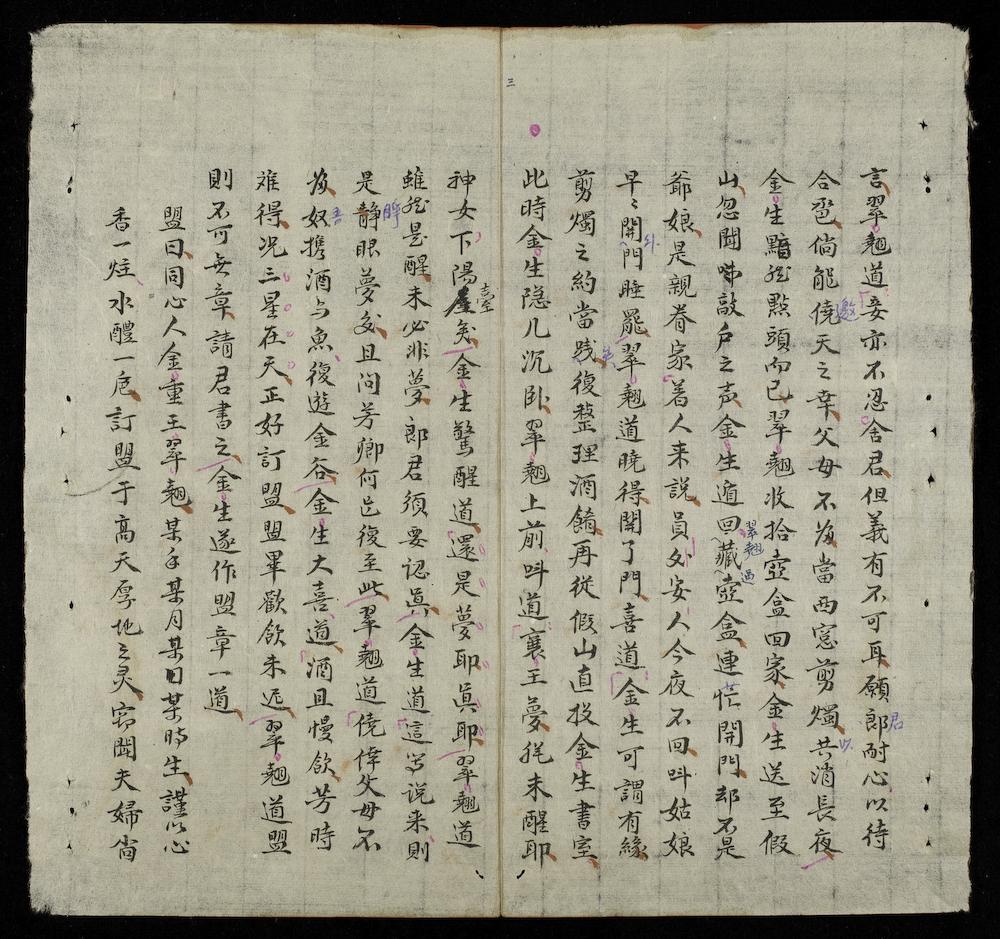 言翠翹道妾亦不忍舍君但義有不可耳願郎耐心以待
君
合卺倘能僥天之幸父母不為當西窓剪燭共消長夜
邀
金生黯然點頭而已翠翹收拾壺盒回家金生送至假
山忽聞啼敲戶之声金生遁回藏壺盒連忙開門却不是
翠翹過
爺娘是親眷家着人来說員外安人今夜不回呌姑娘
早〻開門睡罷翠翹道曉得開了門喜道金生可謂有緣
剪燭之約當践復整理酒餚再従假山直投金生書室
三
此時金生隐几沉卧翠翹上前呌道襄王夢猶未醒耶
神女下陽臺矣金生驚醒道還是夢耶眞耶翠翹道
雖然是醒未必非夢郎君須要认眞金生道這等说来則
是靜眼夢矣且问芳卿何以復至此翠翹道僥倖父母不
為奴携酒与魚復遊金谷金生大喜道酒且慢飲芳時
难得况三星在天正好訂盟盟畢歡飲未迟翠翹道盟
則不可無章請君書之金生遂作盟章一道
盟曰同心人金重王翠翹某年某月某日某時生謹以心
香一炷水醴一卮訂盟于高天厚地之灵窃聞夫婦尚